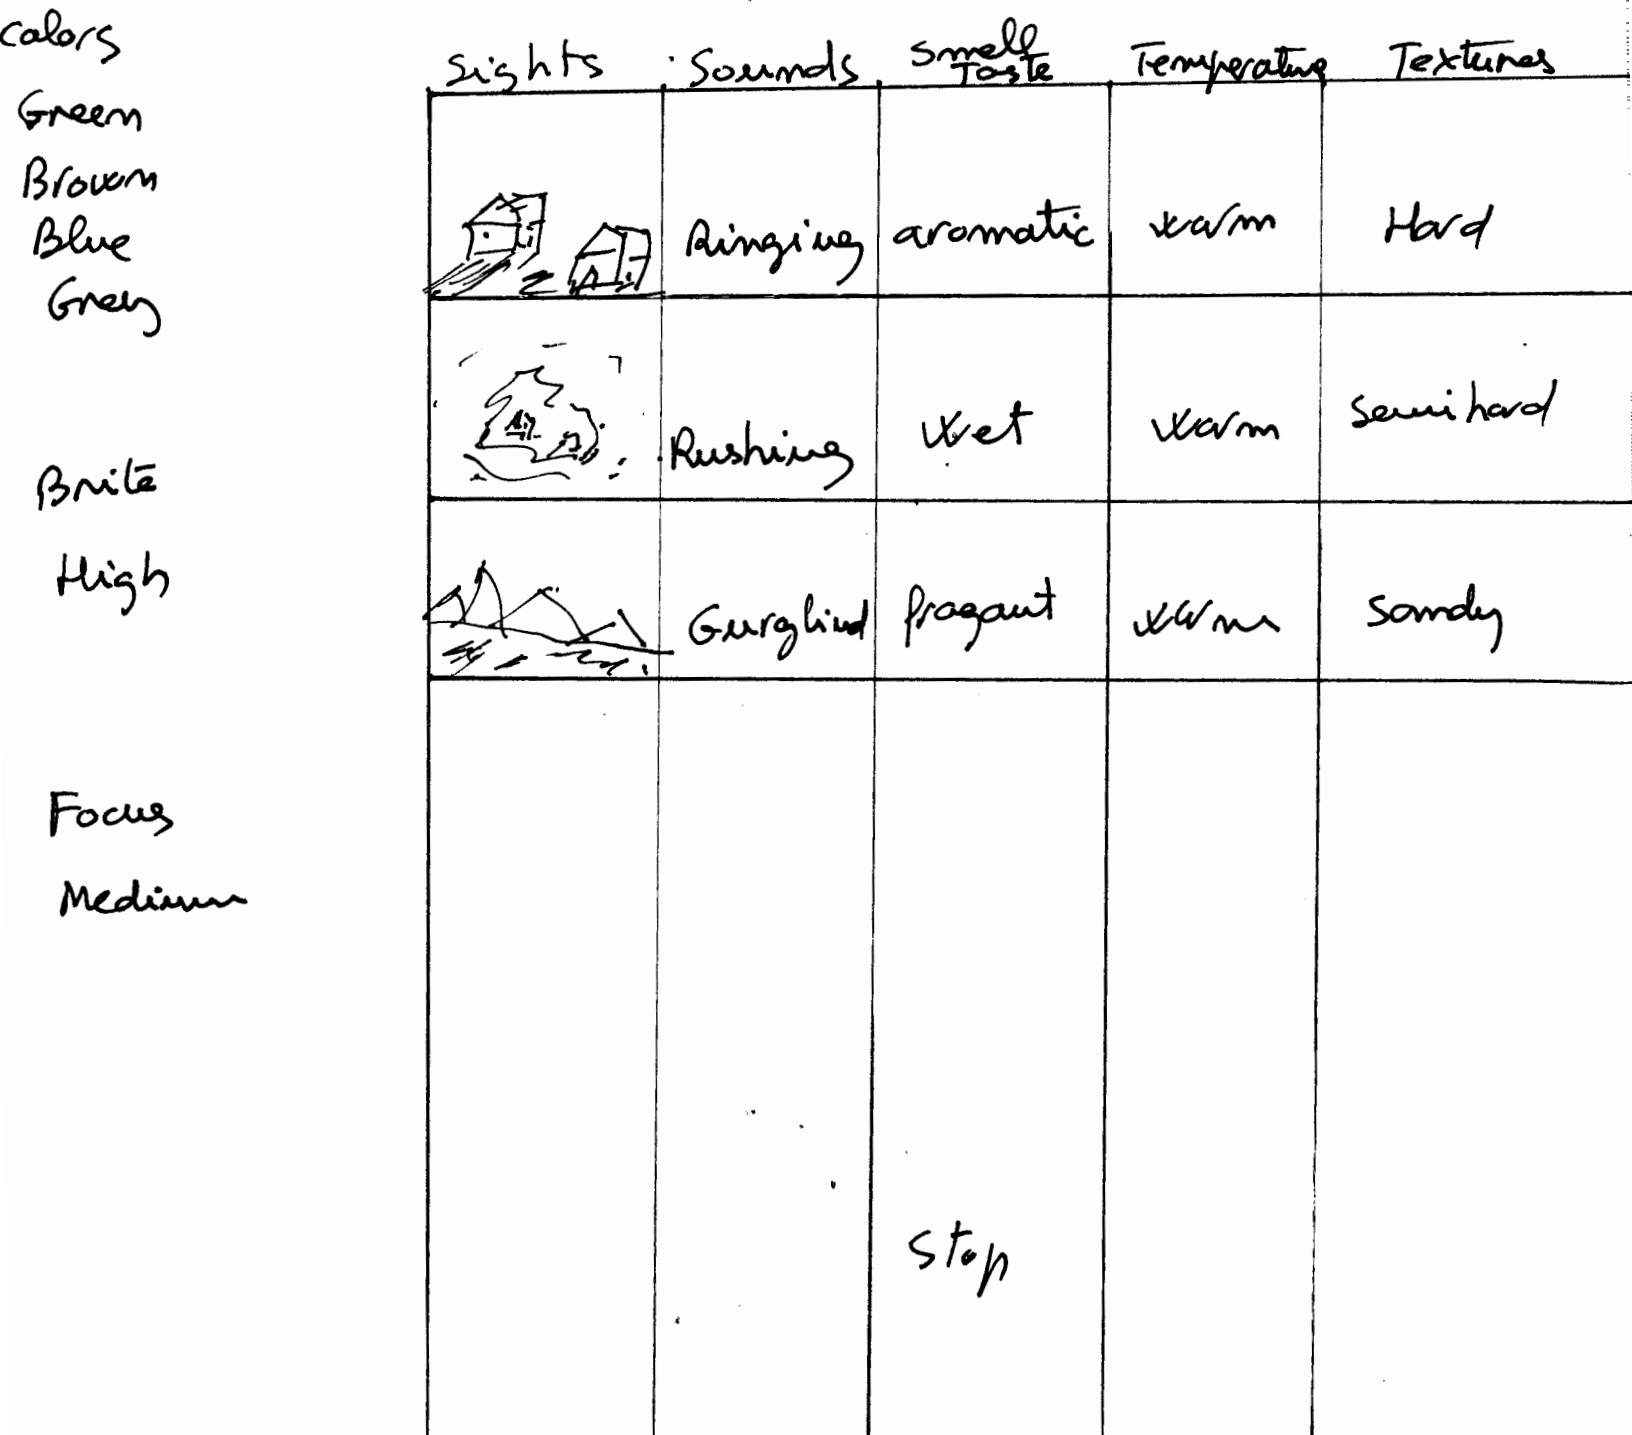 Colors
Green
Brown
Blue
Grey
Brite
High
Focus
Medium
Sights Sounds Smell Taste Temperature Textures
Ringing aromatic warm Hard
Rushing wet warm Semi hard
Gurglind fragant warm Sandy
Stop